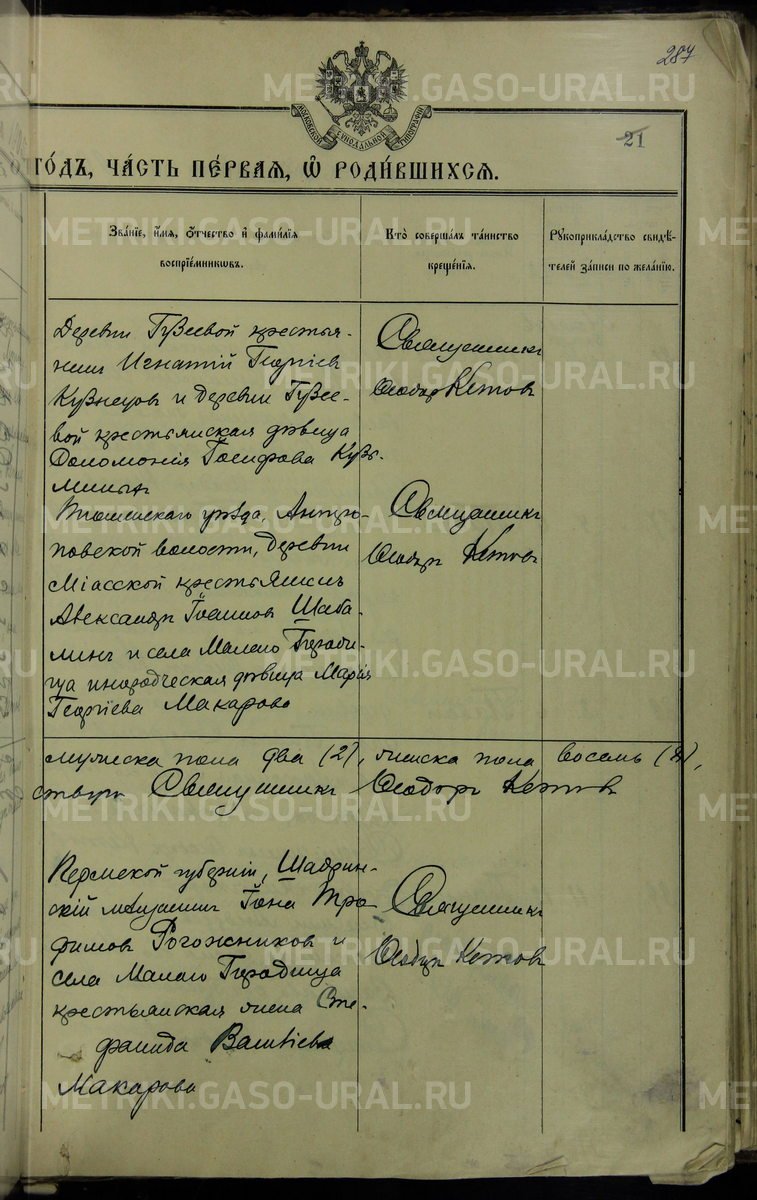 287
МОСКОВСКОЙ СѴНОДАЛЬНОЙ ТИПОГРАФІИ
21
ГО́ДЪ, ЧА́СТЬ ПЕ́РВАЯ, Ѡ҆ РОДИ́ВШИХСЯ.
Зва́нїе, и҆́мя, ѻ҆́тчество и҆ фами́лїя
воспрїе́мникѡвъ.
Кто̀ соверша́лъ та́инство
креще́нїя.
Рꙋкоприкла́дство свидѣ́-
телей за́писи по жела́нїю.
Деревни Гузеевой крестья-
нинъ Игнатій Георгіев
Кузнецовъ и деревни Гузее-
вой крестьянская дѣвица
Соломонія Іосифова Кузь-
миныхъ
Священникъ
Ѳеодоръ Кетовъ
уѣзда,
повской волости, деревни
Міасской крестьянинъ
Александръ Іоанновъ Шаба-
линъ и села Малаго Городи-
ща инородческая дѣвица Марія
Георгіева Макарова
Священникъ
Ѳеодоръ Кетовъ
мужеска пола два (2), женска пола восемь (8),
Священникъ Ѳеодоръ Кетовъ
Пермской губерніи, Шадрин-
скій мѣщанинъ Іона Тро-
фимовъ Рогожниковъ и
села Малаго Городища
крестьянская жена Сте-
фанида
Макарова
Священникъ
Ѳеодоръ Кетовъ
METRIKI.GASO-URAL.RU